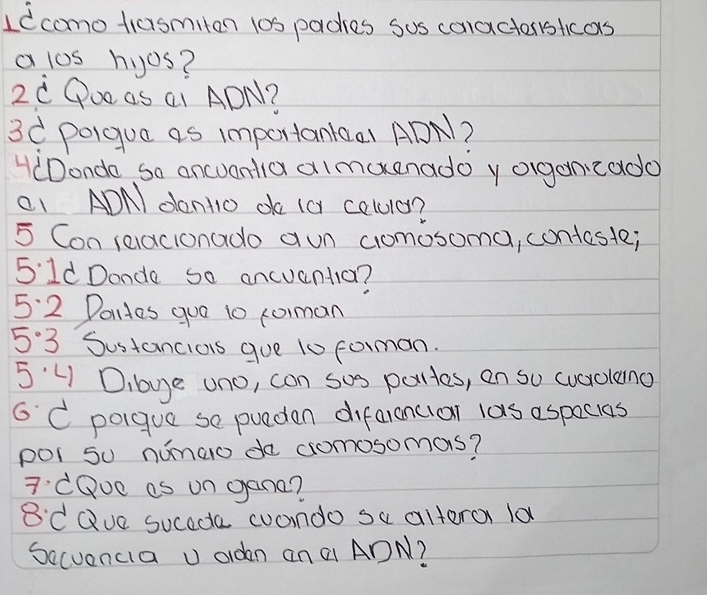 1¿como trasmiten los padres sus caracteristicas
a los hijos?
2¿ Que es el ADN?
3¿ porque es importante el ADN?
4¿Donde se encuentra almacenado y organizado
el ADN dentro de la celula?
5 Con relacionado a un cromosoma, conteste;
5.1¿Donde se encuentra?
5.2 Partes que lo forman
5.3 Sustancias que lo forman.
5.4 Dibuje uno, con sus partes, en su cuaderno
6.¿ porque se pueden diferenciar las especies
por su número de cromosomas?
7.¿Que es un gene?
8.¿ Que sucede cuando se altera la
Secuencia u orden en el ADN?